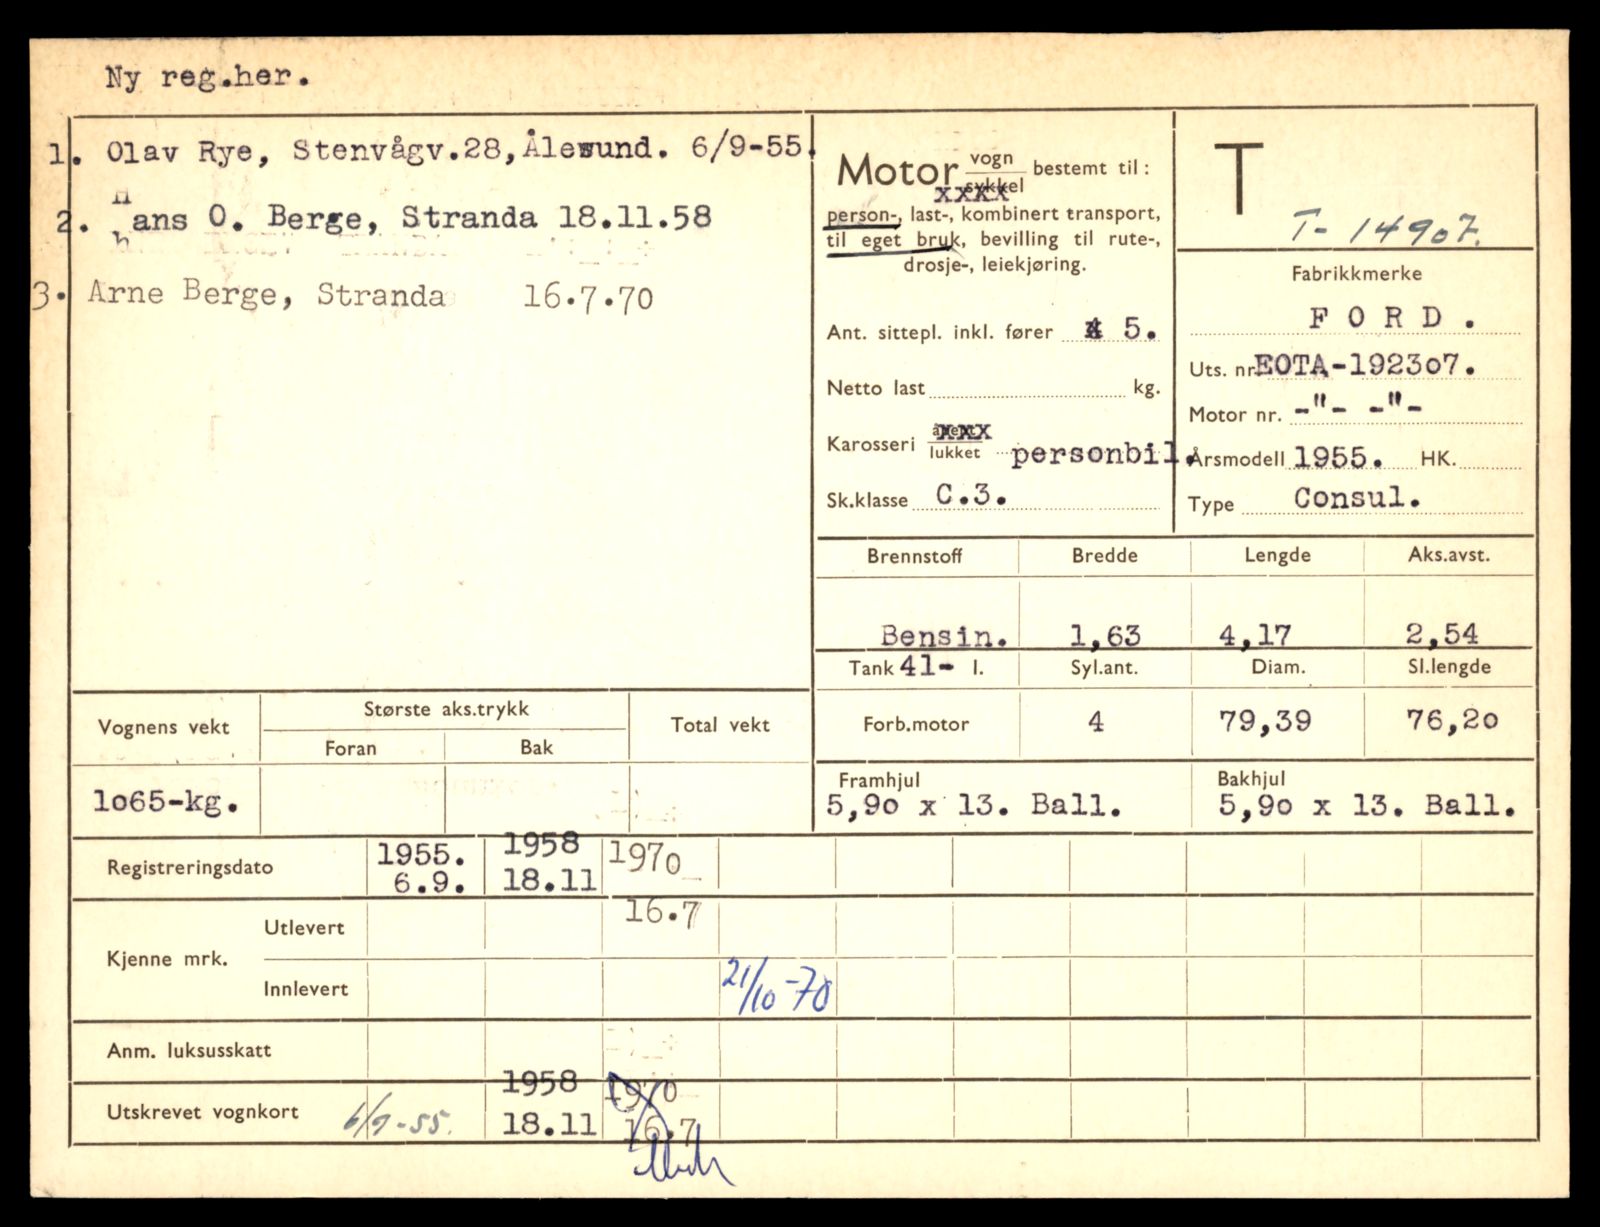 Ny reg.her.
1. Olav Rye, Stenvågv.28,Ålesund. 6/9-55.
2. Hans O. Berge, Stranda 18.11.58
3. Arne Berge, Stranda 16.7.70
Motor vogn sykkel bestemt til:
xxxx
person-, last-, kombinert transport,
til eget bruk, bevilling til rute-,
drosje-, leiekjøring.
Ant. sittepl. inkl. fører 4 5.
Netto last kg.
Karosseri åpent xxx lukket personbil.
Sk.klasse C.3.
T
T-14907.
Fabrikkmerke
FORD.
Uts. nr. EOTA-1923o7.
Motor nr. -"- -"-
Årsmodell 1955. HK.
Type Consul.
Brennstoff Bredde Lengde Aks.avst.
Bensin. 1,63 4,17 2,54
Tank 41- l. Syl.ant. Diam. Sl.lengde
Forb.motor 4 79,39 76,2o
Framhjul Bakhjul
5,9o x 13. Ball. 5,9o x 13. Ball.
Vognens vekt Største aks.trykk Total vekt
Foran Bak
1o65-kg.
Registreringsdato 1955. 1958 1970
6.9. 18.11
16.7
Kjenne mrk. Utlevert
Innlevert 21/10-70
Anm. luksusskatt
1958 1970
Utskrevet vognkort 6/9-55. 18.11 16.7